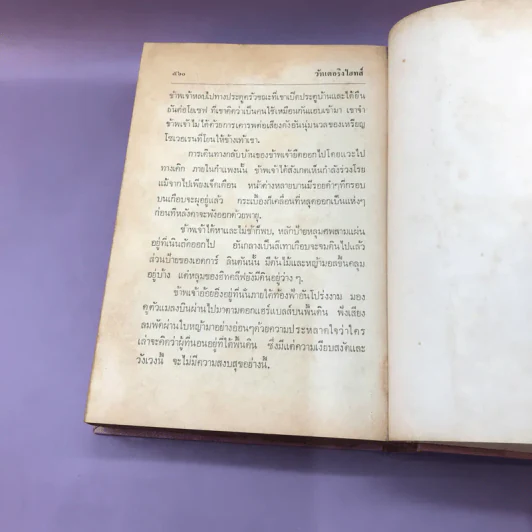 ๕๖๐ วัทเตอริงไฮทส์
ข้าพเจ้าหลบไปทางประตูครัวขณะที่เขาเปิดประตูบ้านและได้ยืน
ยันต่อโยเซฟ ที่เขาคิดว่าเป็นคนใช้เหมือนกันแอบเข้ามา เขาจำ
ข้าพเจ้าไม่ได้ด้วยการเคารพต่อเสียงดังอันนุ่มนวลของเหรียญ
โซเวอเรนที่โยนให้ข้างเท้าเขา.
การเดินทางกลับบ้านของข้าพเจ้ายืดออกไปโดยแวะไป
ทางเคิก ภายในกำแพงนั้น ข้าพเจ้าได้สังเกตเห็นกำลังร่วงโรย
แม้จากไปเพียงเจ็ดเดือน หน้าต่างหลายบานมีรอยดำๆที่กรอบ
บานเกือบจะผุอยู่แล้ว กระเบื้องก็เคลื่อนที่หลุดออกเป็นแห่งๆ
ก่อนที่หลังคาจะพังออกด้วยพายุ.
ข้าพเจ้าได้หาและไม่ช้าก็พบ, หลักป้ายหลุมศพสามแผ่น
อยู่ที่เนินถัดออกไป อันกลางเป็นสีเทาเกือบจะจมดินไปแล้ว
ส่วนป้ายของเอดการ์ ลินตันนั้น มีต้นไม้และหญ้ามอสขึ้นคลุม
อยู่บ้าง แต่หลุมของฮีทคลีฟยังมีดินอยู่ว่างๆ.
ข้าพเจ้าอ้อยอิ่งอยู่ที่นั่นภายใต้ท้องฟ้าอันโปร่งงาม มอง
ดูตัวแมลงบินผ่านไปมาตามดอกแฮร์เบลส์บนพื้นดิน ฟังเสียง
ลมพัดผ่านใบหญ้ามาอย่างอ่อนๆด้วยความประหลาดใจว่าใคร
เล่าจะคิดว่าผู้ที่นอนอยู่ที่ใต้พื้นดิน ซึ่งมีแต่ความเงียบสงัดและ
วังเวงนี้ จะไม่มีความสงบสุขอย่างนี้.